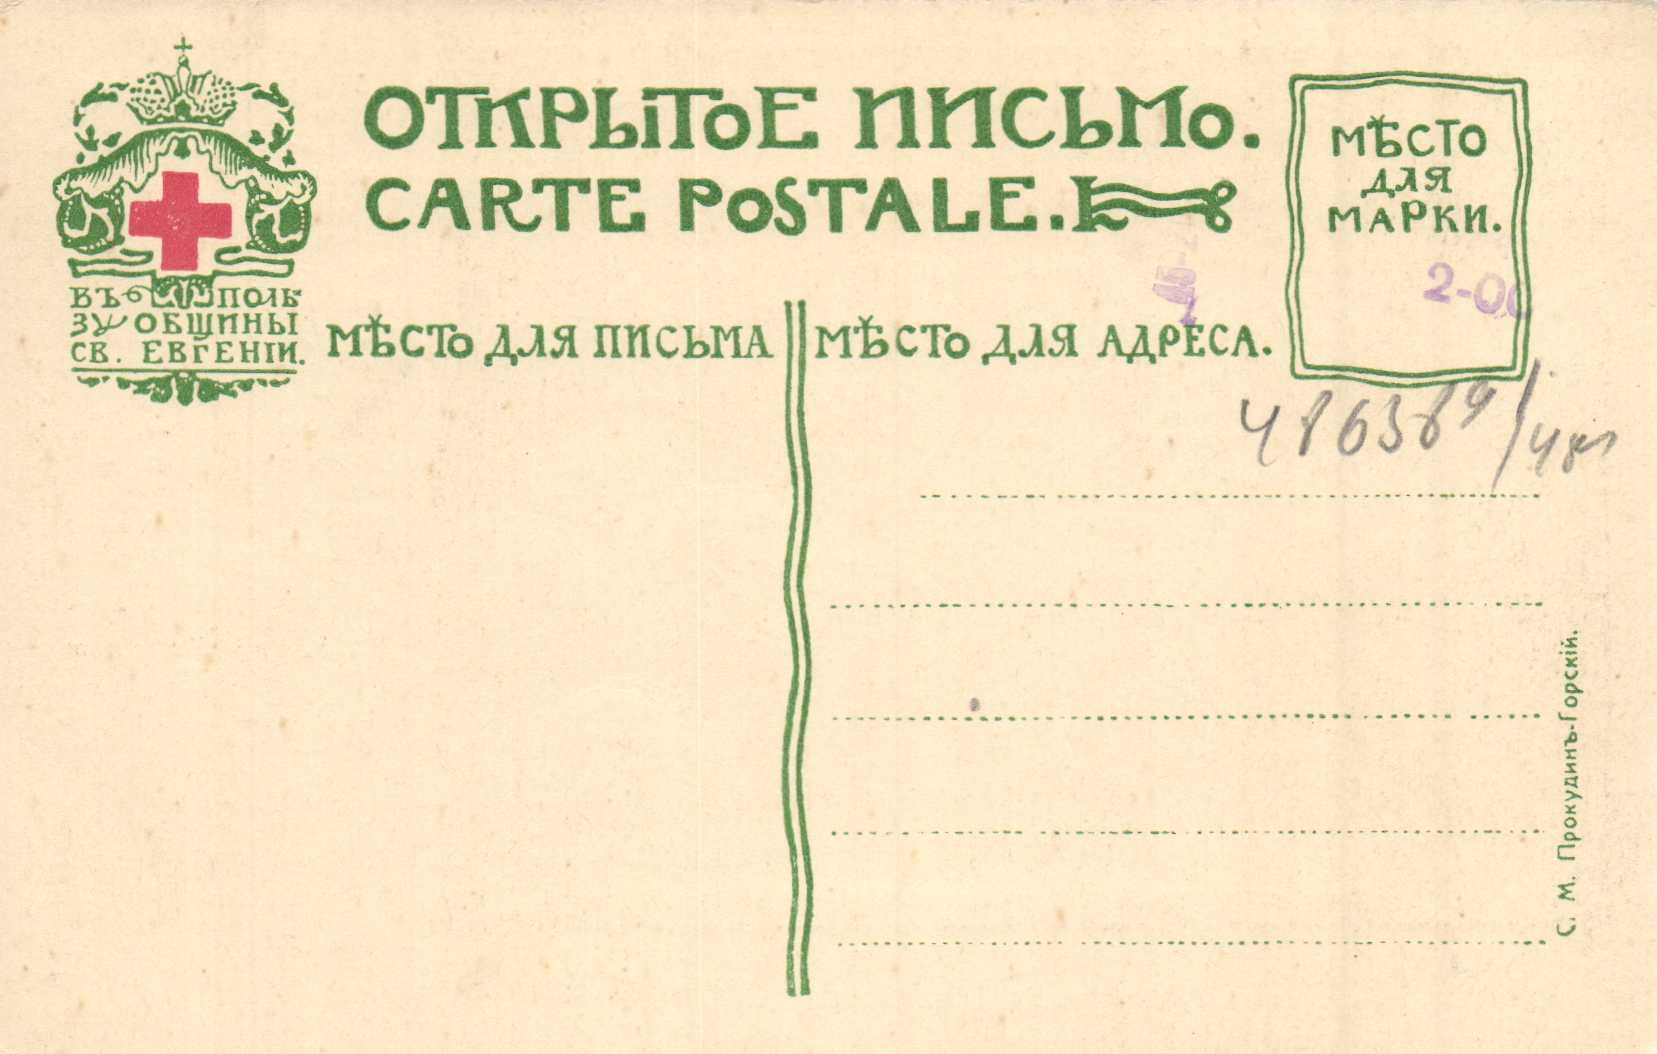 ОТКРЫТОЕ ПИСЬМО.
CARTE POSTALE.
МѢСТО
ДЛЯ
МАРКИ.
2-00
ВЪ ПОЛЬ
ЗУ ОБЩИНЫ
СВ. ЕВГЕНІИ.
МѢСТО ДЛЯ ПИСЬМА
МѢСТО ДЛЯ АДРЕСА.
С. М. Прокудинъ-Горскій.